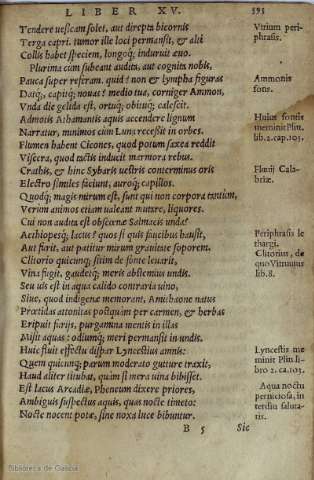 LIBER XV. 595
Tendere vesicam solet, aut direpta bicornis
Terga capri. tumor ille loci permansit, & alti
Collis habet speciem, longoq; induruit ævo.
Plurima cùm subeant audita, aut cognita nobis,
Pauca super referam. quid? non & lympha figuras
Datq;, capitq; nouas? medio tua, corniger Ammon,
Vnda die gelida est, ortuq; obituq; calescit.
Admotis Athamantis aquis accendere lignum
Narratur, minimos cùm Luna recessit in orbes.
Flumen habent Cicones, quod potum saxea reddit
Viscera, quod tactis inducit marmora rebus.
Crathis, & hinc Sybaris vestris conterminus oris
Electro similes faciunt, auroq; capillos.
Quodq; magis mirum est, sunt qui non corpora tantùm,
Verùm animos etiam valeant mutare, liquores.
Cui non audita est obscœnæ Salmacis undæ?
Aethiopesq; lacus? quos si quis faucibus hausit,
Aut furit, aut patitur mirum grauitate soporem.
Clitorio quicunq; sitim de fonte leuarit,
Vina fugit, gaudetq; meris abstemius undis.
Seu vis est in aqua calido contraria vino,
Siue, quod indigenæ memorant, Amithaone natus
Prœtidas attonitas postquàm per carmen, & herbas
Eripuit furijs, purgamina mentis in illas
Misit aquas: odiumq; meri permansit in undis.
Huic fluit effectu dispar Lyncestius amnis:
Quem quicunq; parum moderato gutture traxit,
Haud aliter titubat, quàm si mera vina bibisset.
Est lacus Arcadiæ, Pheneum dixere priores,
Ambiguis suspectus aquis, quas nocte timeto:
Nocte nocent potæ, sine noxa luce bibuntur.
B 5 Sic
Vtrium peri-
phrasis.
Ammonis
fons.
Huius fontis
meminit Plin.
lib. 2. cap. 103.
Fluuij Cala-
briæ.
Periphrasis le
thargi.
Clitorius, de
quo Vitruuius
lib. 8.
Lyncestis me
minit Plin. li
bro 2. ca. 103.
Aqua noctu
perniciosa, in
terdiu saluta-
ris.
Biblioteca de Galicia